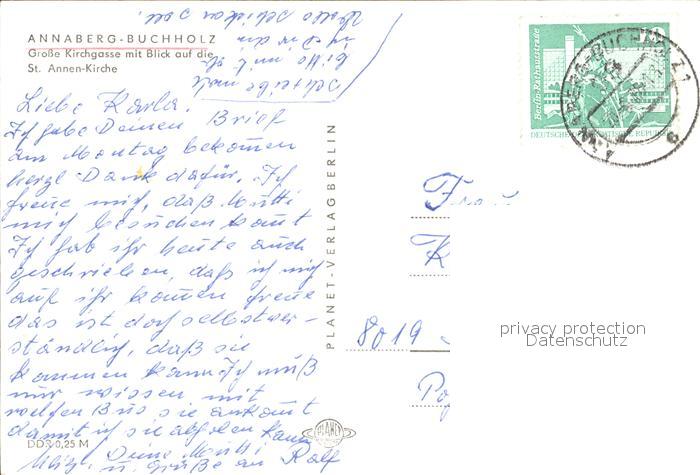 ANNABERG-BUCHHOLZ
Große Kirchgasse mit Blick auf die
St. Annen-Kirche
Liebe Karla.
Ich habe Deinen Brief
am Montag bekommen
herzl Dank dafür. Ich
freue mich, daß Mutti
mich besuchen kommt
Ich hab ihr heute auch
geschrieben, daß ich mich
auf ihr kommen freue
das ist doch selbstver-
ständlich, daß sie
kommen kann. Ich muß
nur wissen mit
welchen Bus sie ankommt
damit ich sie abholen kann
Deine Mutti
u. grüße an Ralf
Schreibe mal
bitte mit
DDR 0,25 M
PLANET-VERLAG BERLIN
PLANET
Berlin-Rathausstraße
DEUTSCHE DEMOKRATISCHE REPUBLIK
ANNABERG-BUCHHOLZ 1
Frau
K
8019
privacy protection
Datenschutz